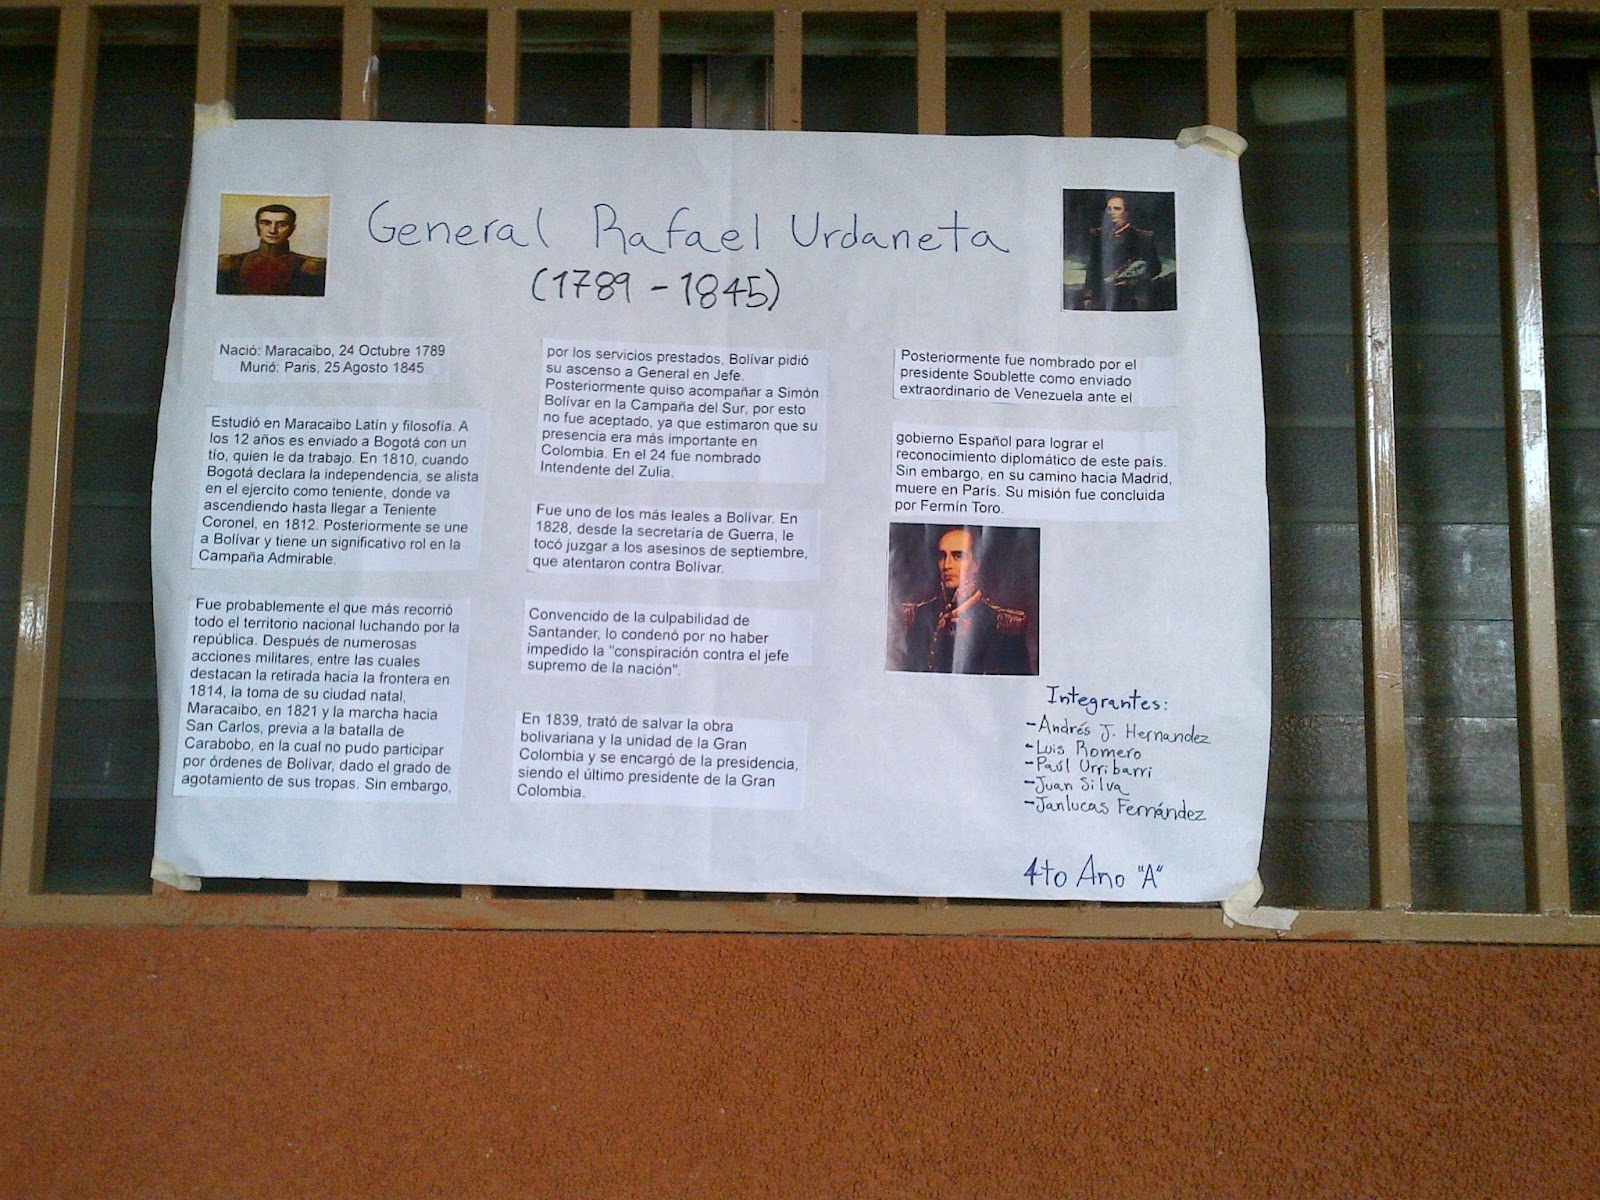 General Rafael Urdaneta
(1789 - 1845)
Nació: Maracaibo, 24 Octubre 1789
Murió: Paris, 25 Agosto 1845
Estudió en Maracaibo Latín y filosofía. A
los 12 años es enviado a Bogotá con un
tío, quien le da trabajo. En 1810, cuando
Bogotá declara la independencia, se alista
en el ejercito como teniente, donde va
ascendiendo hasta llegar a Teniente
Coronel, en 1812. Posteriormente se une
a Bolívar y tiene un significativo rol en la
Campaña Admirable.
Fue probablemente el que más recorrió
todo el territorio nacional luchando por la
república. Después de numerosas
acciones militares, entre las cuales
destacan la retirada hacia la frontera en
1814, la toma de su ciudad natal,
Maracaibo, en 1821 y la marcha hacia
San Carlos, previa a la batalla de
Carabobo, en la cual no pudo participar
por órdenes de Bolívar, dado el grado de
agotamiento de sus tropas. Sin embargo,
por los servicios prestados, Bolívar pidió
su ascenso a General en Jefe.
Posteriormente quiso acompañar a Simón
Bolívar en la Campaña del Sur, por esto
no fue aceptado, ya que estimaron que su
presencia era más importante en
Colombia. En el 24 fue nombrado
Intendente del Zulia.
Fue uno de los más leales a Bolívar. En
1828, desde la secretaría de Guerra, le
tocó juzgar a los asesinos de septiembre,
que atentaron contra Bolívar.
Convencido de la culpabilidad de
Santander, lo condenó por no haber
impedido la "conspiración contra el jefe
supremo de la nación".
En 1839, trató de salvar la obra
bolivariana y la unidad de la Gran
Colombia y se encargó de la presidencia,
siendo el último presidente de la Gran
Colombia.
Posteriormente fue nombrado por el
presidente Soublette como enviado
extraordinario de Venezuela ante el
gobierno Español para lograr el
reconocimiento diplomático de este país.
Sin embargo, en su camino hacia Madrid,
muere en París. Su misión fue concluida
por Fermín Toro.
Integrantes:
-Andrés J. Hernandez
-Luis Romero
-Paúl Urribarri
-Juan Silva
-Janlucas Fernández
4to Ano "A"